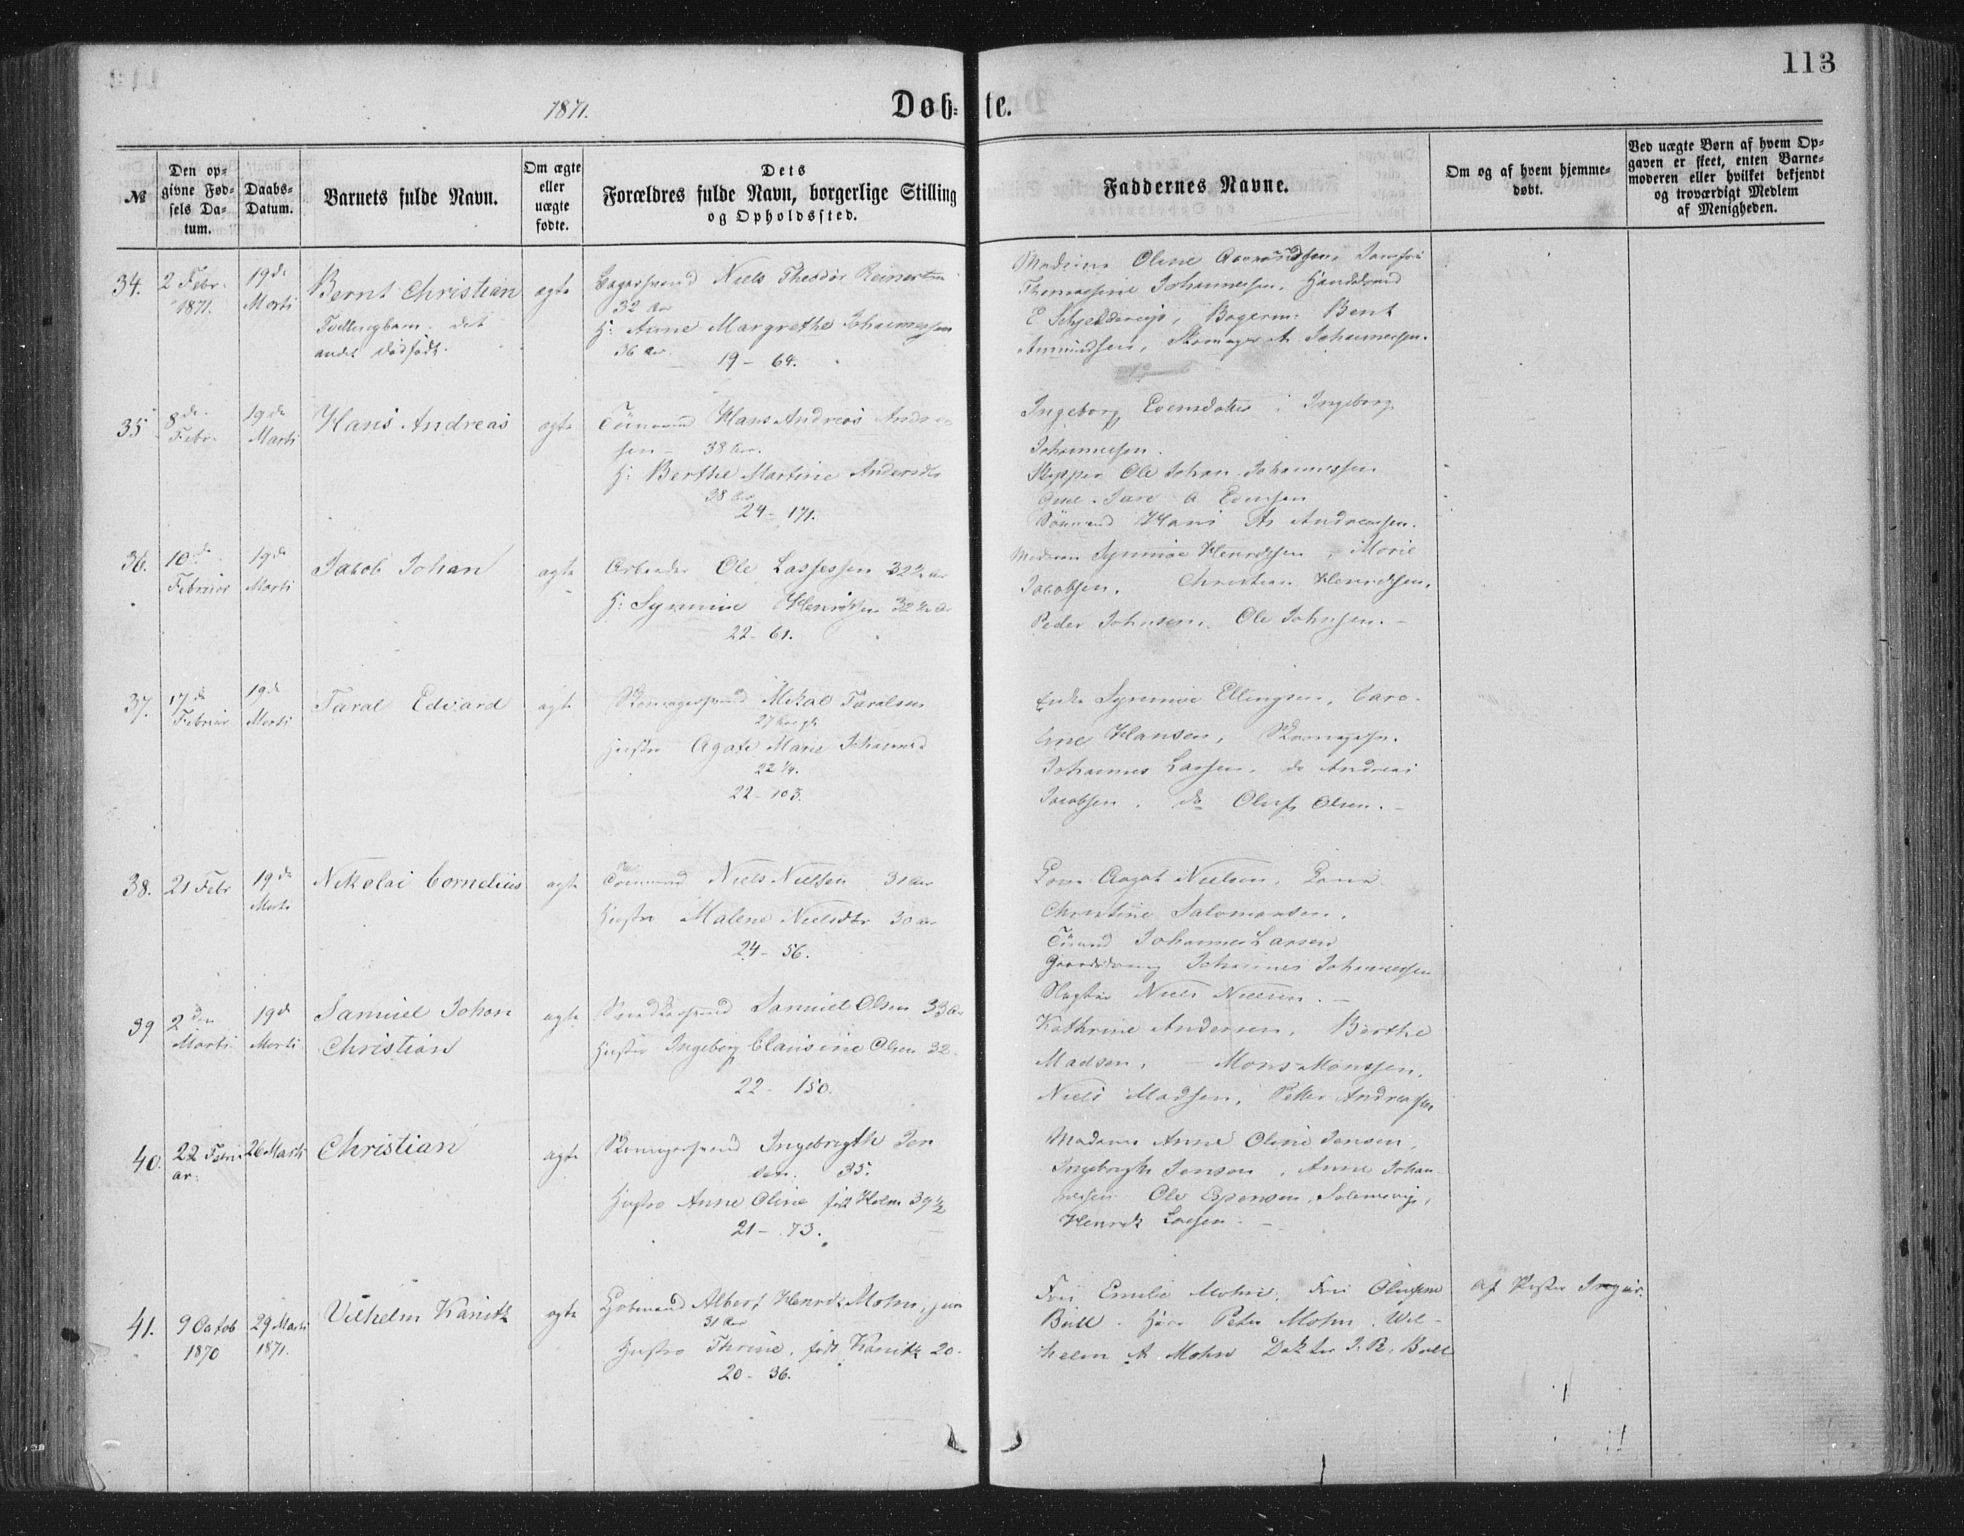 113
1871.
Døb-te.
№
Den op-
givne Fød-
sels Da-
tum.
Daabs-
Datum.
Barnets fulde Navn.
Om ægte
eller
uægte
fødte.
Dets
Forældres fulde Navn, borgerlige Stilling
og Opholdssted.
Faddernes Navne.
Om og af hvem hjemme-
døbt.
Ved uægte Børn af hvem Op-
gaven er skeet, enten Barne-
moderen eller hvilket bekjendt
og troværdigt Medlem
af Menigheden.
34.
2 Febr.
1871.
19de
Marti
Bernt Christian
Tvillingbarn. det
andet dødfødt.
ægte
Niels Theodor Reinertsen
32 Aar
H: Anne Margrethe Johannessen
36 Aar.
19 - 64.
Madame Oline
Thomasine Johannessen,
Bent
Amundsen, Skomager A. Johannessen.
35
8de
Febr.
19de
Marti
Hans Andreas
ægte
Hans Andreas Andrea
sen - 38 Aar.
H: Berthe Martine Andersdtr
38 Aar
24 - 171.
Ingeborg Evensdatter, Ingeborg
Johannessen.
Skipper Ole Johan Johannessen
Evensen
Hans As Andreassen.
36.
10de
Februar
19de
Marti
Jacob Johan
ægte
Arbeider Ole Lassessen 32½ Aar
H: Synnive Henriksen 32
22 - 61.
Madam Synnive Henriksen, Marie
Jacobsen, Christian Henriksen,
Peder Johnsen, Ole Johnsen. -
37.
17de
Februar
19de
Marti
Taral Edvard
ægte
Skomagersvend Mikal Taralsen
27 Aar
Hustro Agate Marie Johannesd
22 ¼.
22 - 103.
Enke Synnive Ellingsen, Caro-
line Hansen,
Johannes Larsen, do Andreas
Jacobsen, do Oluf Olsen. -
38.
21 Febr
19de
Marti
Nikolai Cornelius
ægte
Niels Nielsen 31 Aar
Hustro Malene Nielsdtr 30 Aar
24 - 56.
Aagot Nielsen,
Christine Salomonsen,
Johannes Larsen
Johannes Johannessen
Slagter Niels Nielsen. -
39
2den
Marti
19de
Marti
Samuel Johan
Christian
ægte
Samuel Olsen 33 Aar
Hustro Ingeborg Clausine Olsen 32.
22 - 150.
Kathrine Andersen, Berthe
Madsen, - Mons Monssen,
Niels Madsen, Petter Andreassen
40.
22 Febru
ar.
26 Marti
Christian
ægte
Skomagersvend Ingebrigth Jen
sen. 35.
Hustro Anne Oline født Holm 39½
21 - 73.
Madame Anne Oline Jensen,
Ingeborgh Jensen, Anne Johan-
nesen Ole Espensen,
Henrik Larsen. -
41.
9 Octob
1870
29 Marti
1871.
Vilhelm Kanitz
ægte
Kjøbmand Albert Henrik Mohn, jun
31 Aar
Hustro Thrine, født Kanitz 20.
20 - 36.
Fru Emilie Mohn, Fru
Bull. Herr Peter Mohn, Wil-
helm A. Mohn Doktor J. R. Bull
af